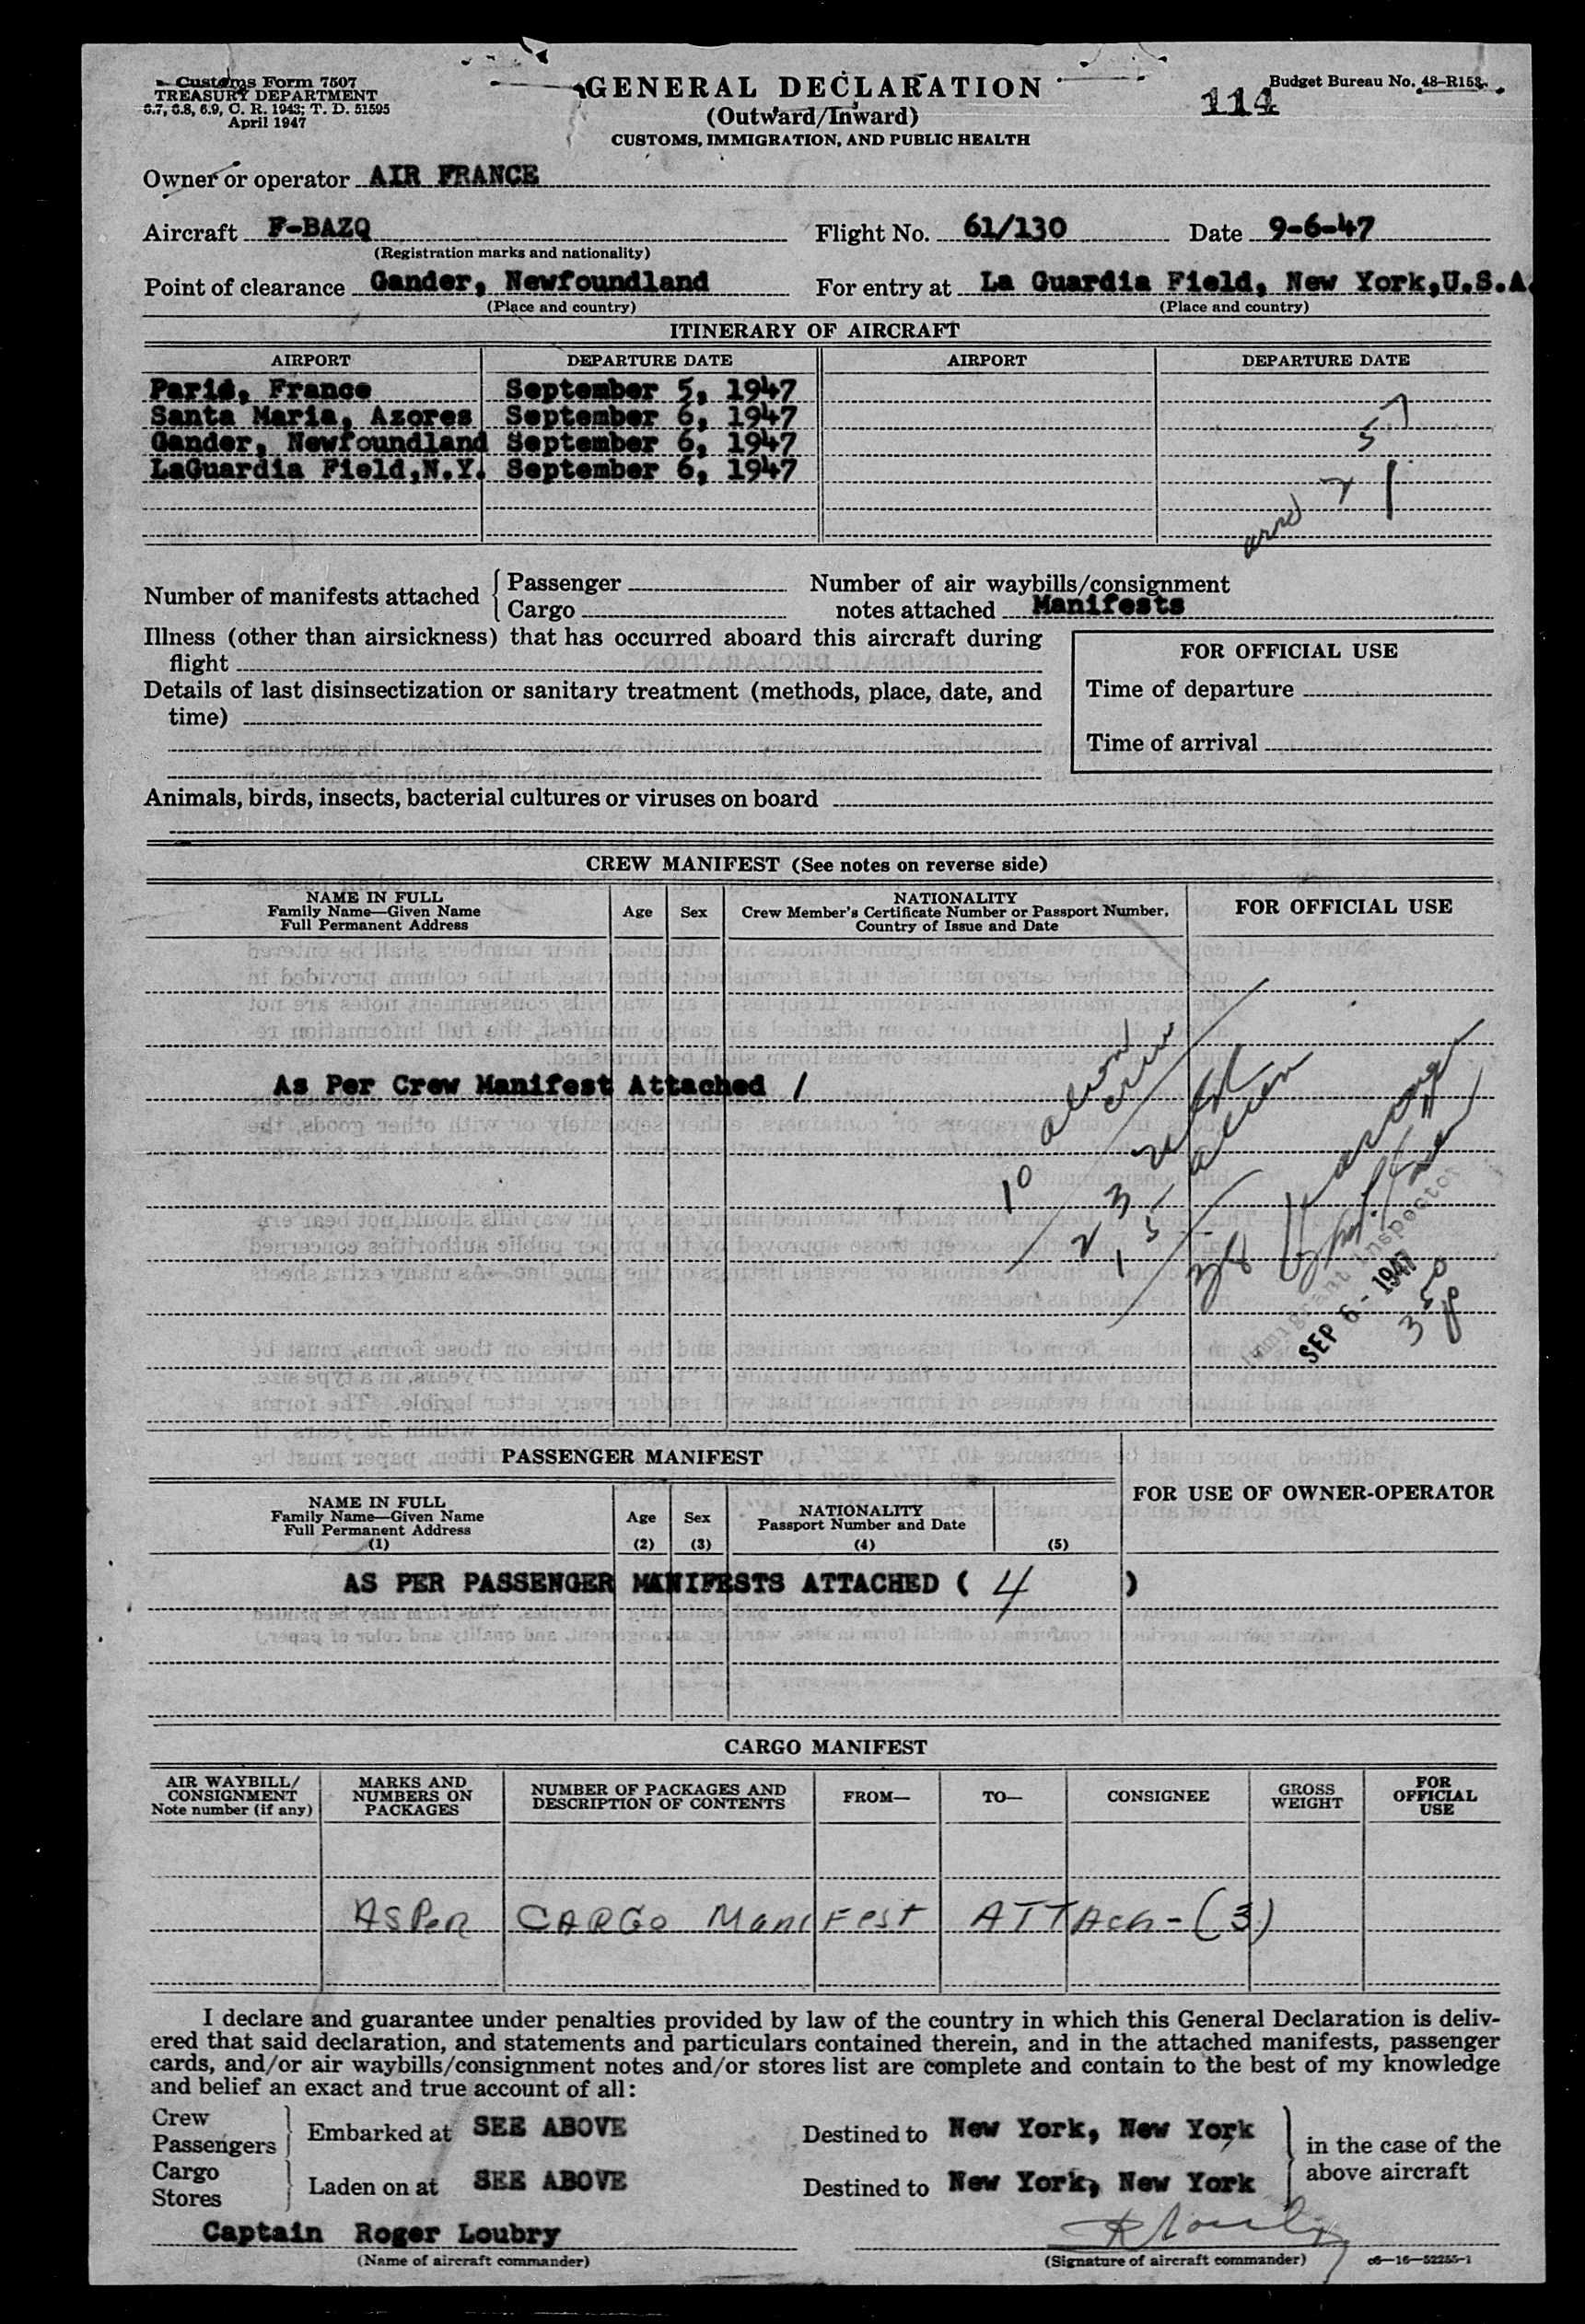 Customs Form 7507
TREASURY DEPARTMENT
6.7, 6.8, 6.9, C. R. 1943; T. D. 51595
April 1947
GENERAL DECLARATION
(Outward/Inward)
CUSTOMS, IMMIGRATION, AND PUBLIC HEALTH
Budget Bureau No. 48-R153.
114
Owner or operator AIR FRANCE
Aircraft F-BAZQ Flight No. 61/130 Date 9-6-47
(Registration marks and nationality)
Point of clearance Gander, Newfoundland For entry at La Guardia Field, New York,U.S.A.
(Place and country) (Place and country)
ITINERARY OF AIRCRAFT
AIRPORT DEPARTURE DATE AIRPORT DEPARTURE DATE
Paris, France September 5, 1947
Santa Maria, Azores September 6, 1947
Gander, Newfoundland September 6, 1947
LaGuardia Field,N.Y. September 6, 1947
Number of manifests attached { Passenger
Cargo
Number of air waybills/consignment
notes attached Manifests
Illness (other than airsickness) that has occurred aboard this aircraft during
flight
Details of last disinsectization or sanitary treatment (methods, place, date, and
time)
FOR OFFICIAL USE
Time of departure
Time of arrival
Animals, birds, insects, bacterial cultures or viruses on board
CREW MANIFEST (See notes on reverse side)
NAME IN FULL
Family Name—Given Name
Full Permanent Address
Age
Sex
NATIONALITY
Crew Member's Certificate Number or Passport Number,
Country of Issue and Date
FOR OFFICIAL USE
As Per Crew Manifest Attached 1
10 alien crew
Immigrant Inspector
SEP 6 - 1947
PASSENGER MANIFEST
NAME IN FULL
Family Name—Given Name
Full Permanent Address
(1)
Age
(2)
Sex
(3)
NATIONALITY
Passport Number and Date
(4)
(5)
FOR USE OF OWNER-OPERATOR
AS PER PASSENGER MANIFESTS ATTACHED ( 4 )
CARGO MANIFEST
AIR WAYBILL/
CONSIGNMENT
Note number (if any)
MARKS AND
NUMBERS ON
PACKAGES
NUMBER OF PACKAGES AND
DESCRIPTION OF CONTENTS
FROM—
TO—
CONSIGNEE
GROSS
WEIGHT
FOR
OFFICIAL
USE
AS Per CARGO Manifest ATTAch-(3)
I declare and guarantee under penalties provided by law of the country in which this General Declaration is deliv-
ered that said declaration, and statements and particulars contained therein, and in the attached manifests, passenger
cards, and/or air waybills/consignment notes and/or stores list are complete and contain to the best of my knowledge
and belief an exact and true account of all:
Crew
Passengers } Embarked at SEE ABOVE Destined to New York, New York
Cargo
Stores } Laden on at SEE ABOVE Destined to New York, New York
in the case of the
above aircraft
Captain Roger Loubry
(Name of aircraft commander)
(Signature of aircraft commander)
c6—16—52255-1